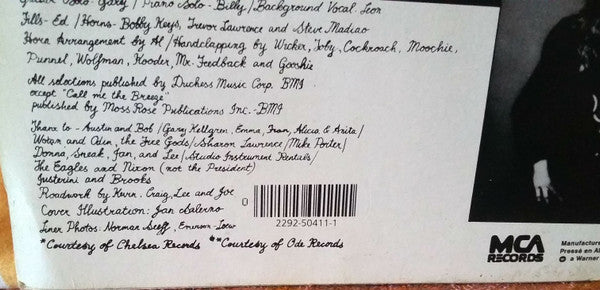 Solo - Gary / Piano Solo - Billy / Background Vocal. Leon
Fills - Ed / Horns - Bobby Keys, Trevor Lawrence and Steve Madiao
Horn Arrangement by Al / Handclapping by Wicker, Toby, Cockroach, Moochie,
Punnel, Wolfman, Kooder, Mr. Feedback and Gooshie
All selections published by Duchess Music Corp. BMI
except "Call me the Breeze"
published by Moss Rose Publications Inc. - BMI
Thanx to - Austin and Bob / Gary Kellgren, Emma, Fran, Alicia & Anita /
Wotan and Odin, the Fire Gods / Sharon Lawrence / Mike Porter /
Donna, Sneak, Jan, and Lee / Studio Instrument Rentals /
The Eagles and Nixon (not the President)
Justerini and Brooks
Roadwork by Kevin, Craig, Lee and Joe
Cover Illustration: Jan Salerno
Liner Photos: Norman Seeff, Emerson-Loew
*Courtesy of Chelsea Records **Courtesy of Ode Records
0
2292-50411-1
MCA
RECORDS
Manufacture
Pressé en Al
a Warner